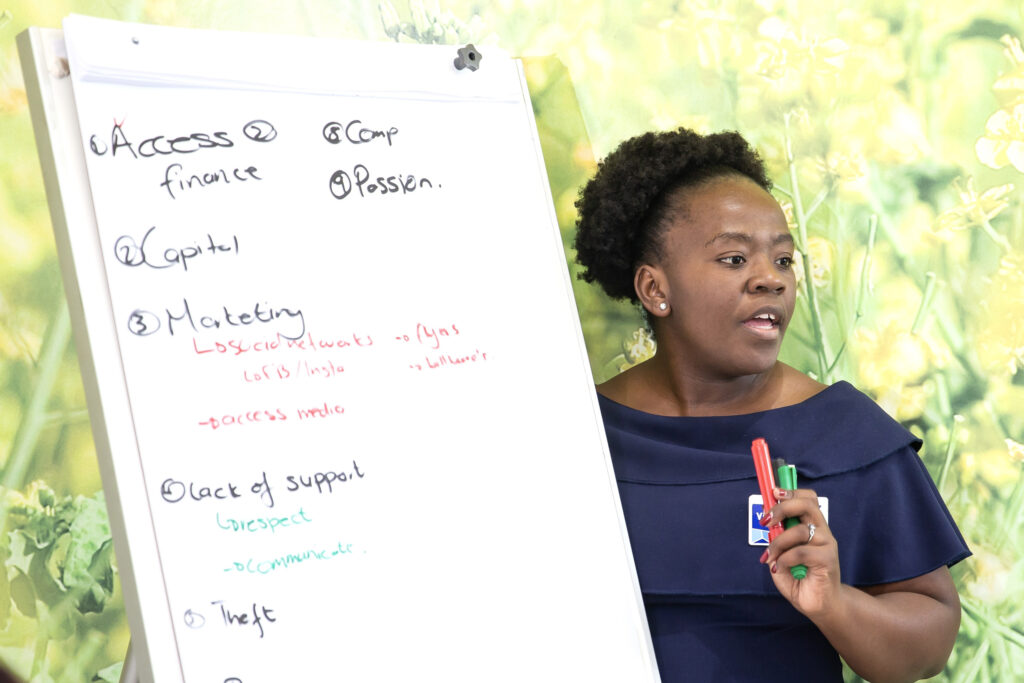 ① Access ②
finance
② Capital
③ Marketing
social Networks
FB/Insta
access media
④ Lack of support
respect
communicate.
Theft
⑧ Comp
⑨ Passion.
flyers